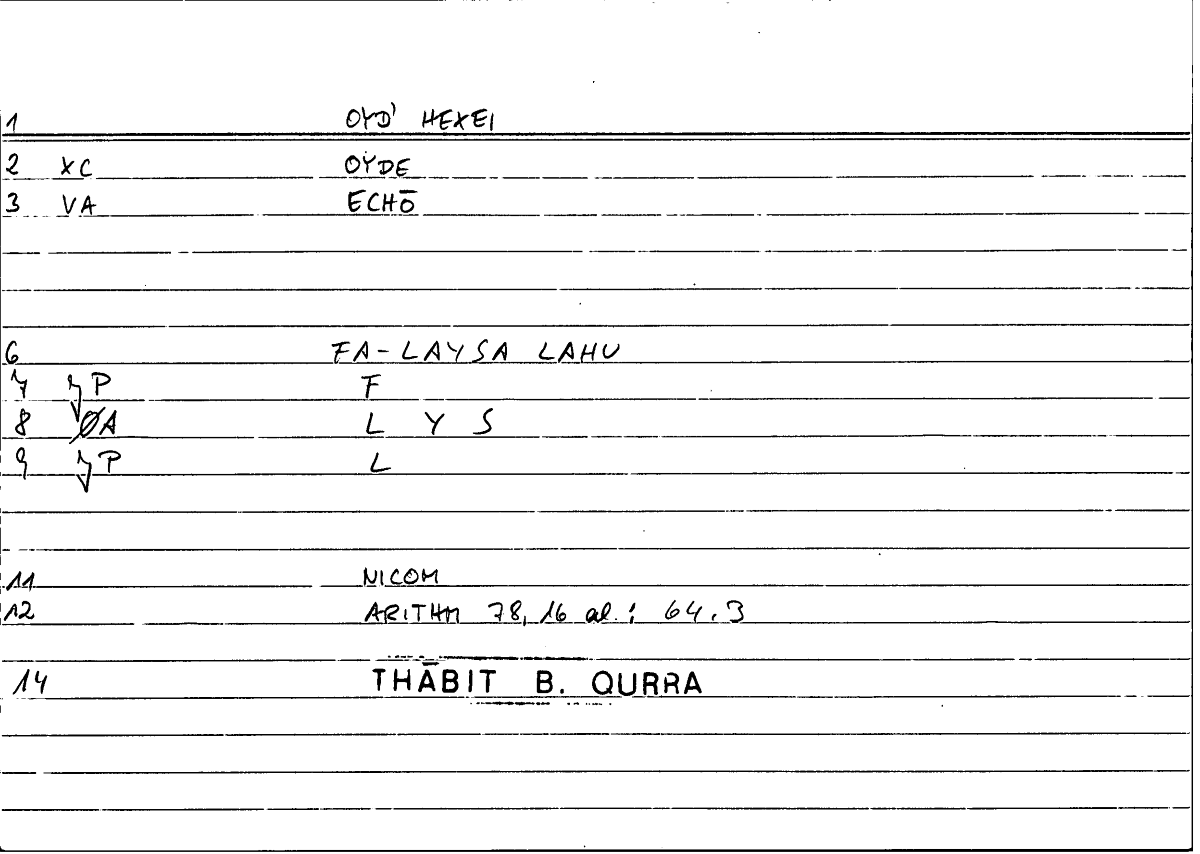 1 OYD' HEXEI
2 XC OYDE
3 VA ECHŌ
6 FA-LAYSA LAHU
7 P F
8 ØA L Y S
9 P L
11 NICOM
12 ARITHM 78,16 al.: 64.3
14 THĀBIT B. QURRA